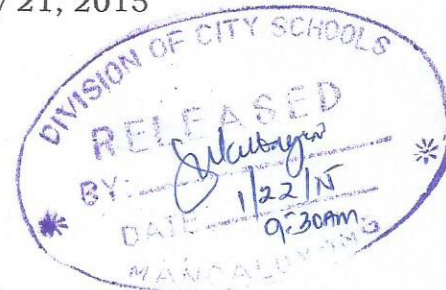 21, 2015
DIVISION OF CITY SCHOOLS
RELEASED
BY:
DATE
1/22/15
9:30AM
MANDALUYONG